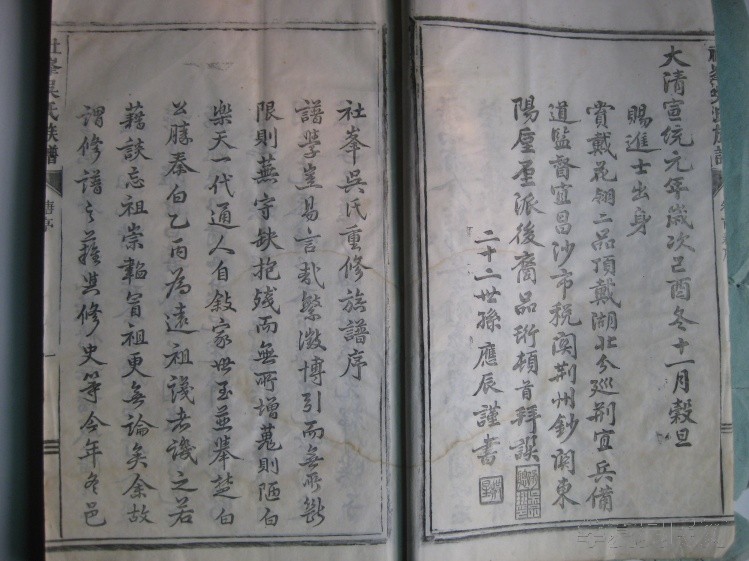 大清宣統元年歲次己酉冬十一月穀旦
賜進士出身
賞戴花翎二品頂戴湖北分巡荆宜兵備
道監督宜昌沙市稅關荆州鈔關東
陽廬厔派後裔品珩頓首拜譔
二十二世孫應辰謹書
社峯吳氏重修族譜序
譜學豈易言哉繁徵博引而無所斷
限則蕪守缺抱殘而無所增蒐則陋白
樂天一代通人自敍家世至並舉楚白
公勝秦白乙丙為遠祖譏者譏之若
藉談忘祖崇韜冒祖更無論矣余故
謂修譜之難與修史等今年冬邑
社峯吳氏族譜
舊序